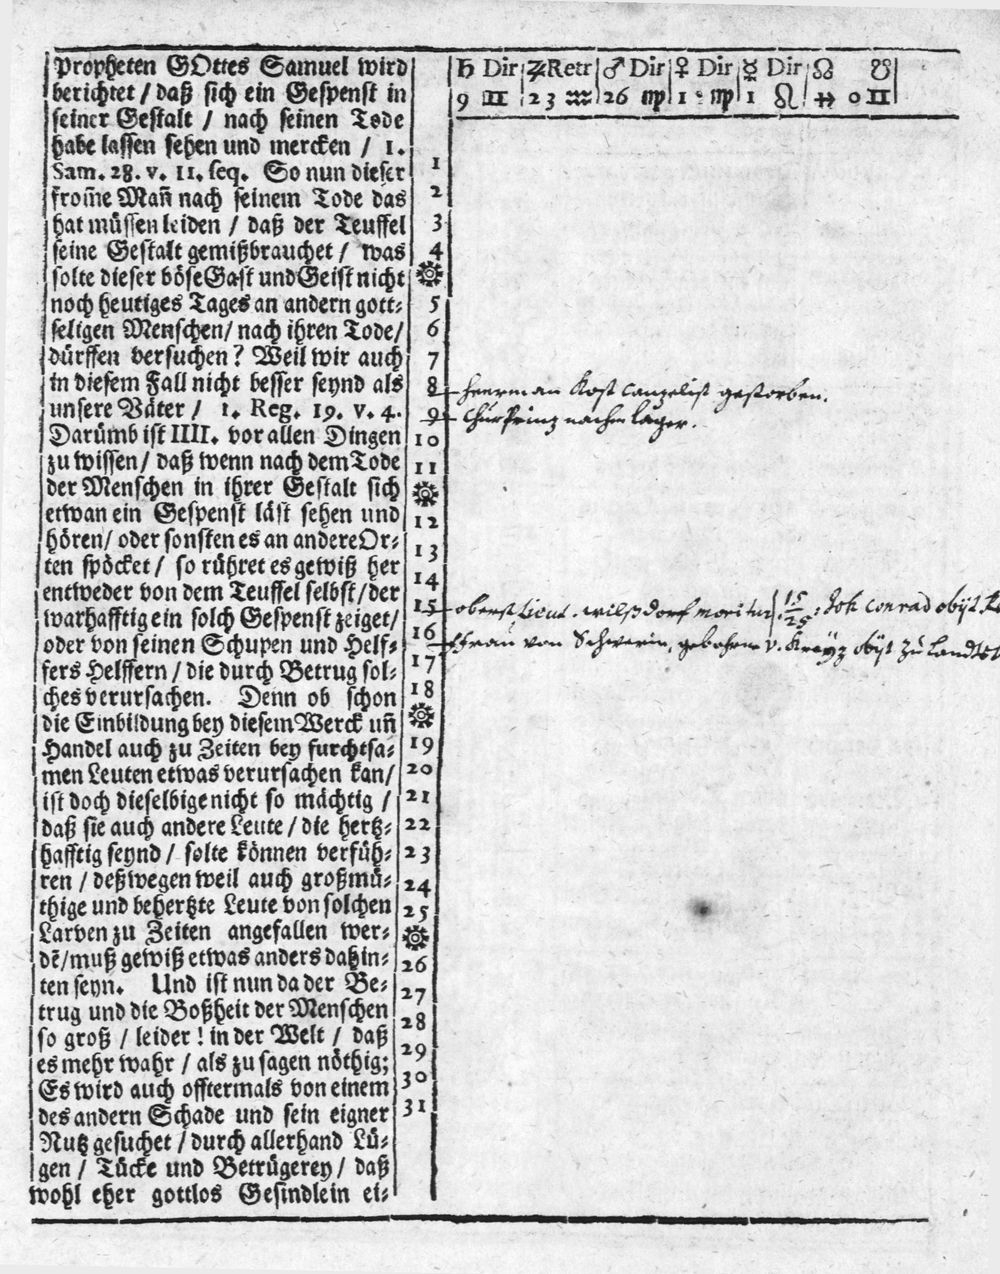 Propheten GOttes Samuel wird
berichtet / daß sich ein Gespenst in
seiner Gestalt / nach seinen Tode
habe lassen sehen und mercken / 1.
Sam. 28. v. 11. seq. So nun dieser
from̃e Mañ nach seinem Tode das
hat müssen leiden / daß der Teuffel
seine Gestalt gemißbrauchet / was
solte dieser böse Gast und Geist nicht
noch heutiges Tages an andern gott-
seligen Menschen / nach ihren Tode /
dürffen versuchen? Weil wir auch
in diesem Fall nicht besser seynd als
unsere Väter / 1. Reg. 19. v. 4.
Darümb ist IIII. vor allen Dingen
zu wissen / daß wenn nach dem Tode
der Menschen in ihrer Gestalt sich
etwan ein Gespenst läst sehen und
hören / oder sonsten es an andere Or-
ten spöcket / so rühret es gewiß her
entweder von dem Teuffel selbst / der
warhafftig ein solch Gespenst zeiget /
oder von seinen Schupen und Helf-
fers Helffern / die durch Betrug sol-
ches verursachen. Denn ob schon
die Einbildung bey diesem Werck uñ
Handel auch zu Zeiten bey furchtsa-
men Leuten etwas verursachen kan /
ist doch dieselbige nicht so mächtig /
daß sie auch andere Leute / die hertz-
hafftig seynd / solte können verfüh-
ren / deßwegen weil auch großmü-
thige und behertzte Leute von solchen
Larven zu Zeiten angefallen wer-
dẽ / muß gewiß etwas anders dahin-
ten seyn. Und ist nun da der Be-
trug und die Boßheit der Menschen
so groß / leider! in der Welt / daß
es mehr wahr / als zu sagen nöthig;
Es wird auch offtermals von einem
des andern Schade und sein eigner
Nutz gesuchet / durch allerhand Lü-
gen / Tücke und Betrügerey / daß
wohl eher gottlos Gesindlein ei-
♄ Dir ♃ Retr ♂ Dir ♀ Dir ☿ Dir ☊ ☋
9 ♊ 23 ♒ 26 ♍ 1 ♍ 1 ♌ ♐ 0 ♊
1
2
3
4
5
6
7
8 heerman Kost Canzelist gestorben.
9 ChurPrinz nachm lager.
10
11
12
13
14
15 oberst Lieut. wilßdorf moritur 15/25 Joh Conrad obijt
16 Frau von Schwerin, gebohrne v. Kreyz obijt zu Landts
17
18
19
20
21
22
23
24
25
26
27
28
29
30
31